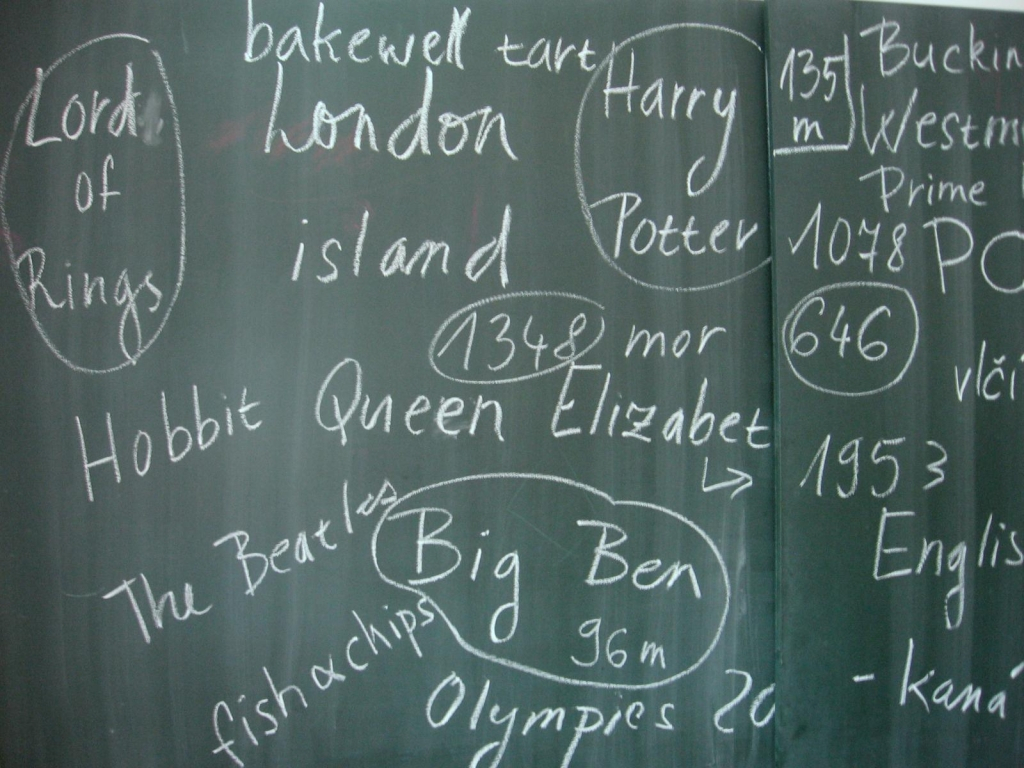 bakewell tart
London
Lord
of
Rings
Harry
Potter
island
1348 mor
Hobbit
Queen Elizabet
The Beatles
Big Ben
96m
fish & chips
Olympics 20
135
m
Buckin
Westm
Prime
1078 PO
646
vlčí
1953
Englis
- kaná